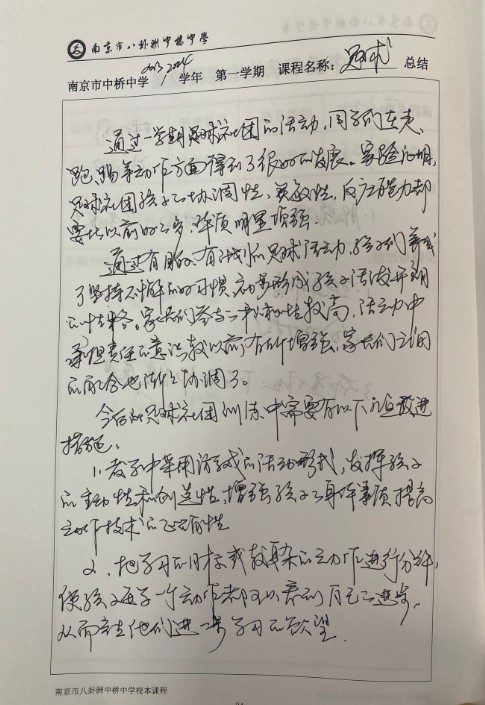 南京市八卦洲中桥中学
南京市中桥中学 2023/2024 学年 第一学期 课程名称: 足球 总结
通过一学期足球社团的活动,同学们在走、
跑、踢等动作方面得到了很好的发展。实验证明,
足球社团孩子的协调性、灵敏性、反应能力却
要比以前的高,体质明显增强。
通过有趣、有计划的足球活动,孩子们养成
了坚持不懈的好习惯,也易形成孩子活泼开朗
的性格。家长们参与的积极性较高,活动中
承担责任的意识较以前有所增强,家长们之间
的配合也渐渐协调了。
今后的足球社团训练中需要有以下几点改进
措施。
1、教学中采用游戏的活动形式,发挥孩子
的主动性和创造性,增强孩子的身体素质提高
动作技术的正确性
2、把学习的目标或较复杂的动作进行分解,
使孩子每学一个动作都可以看到自己的进步,
从而产生他们进一步学习的欲望.
南京市八卦洲中桥中学校本课程